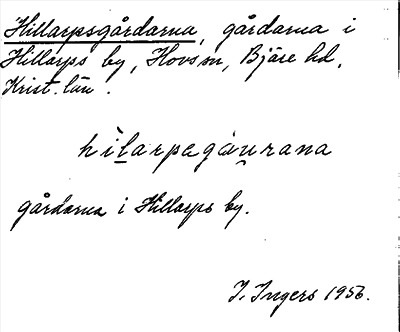 Hillarpsgårdarna, gårdarna i
Hillarps by, Hovs sn, Bjäre hd,
Krist. län.
hìlarpegàu̯rana
gårdarna i Hillarps by.
I. Ingers 1956.